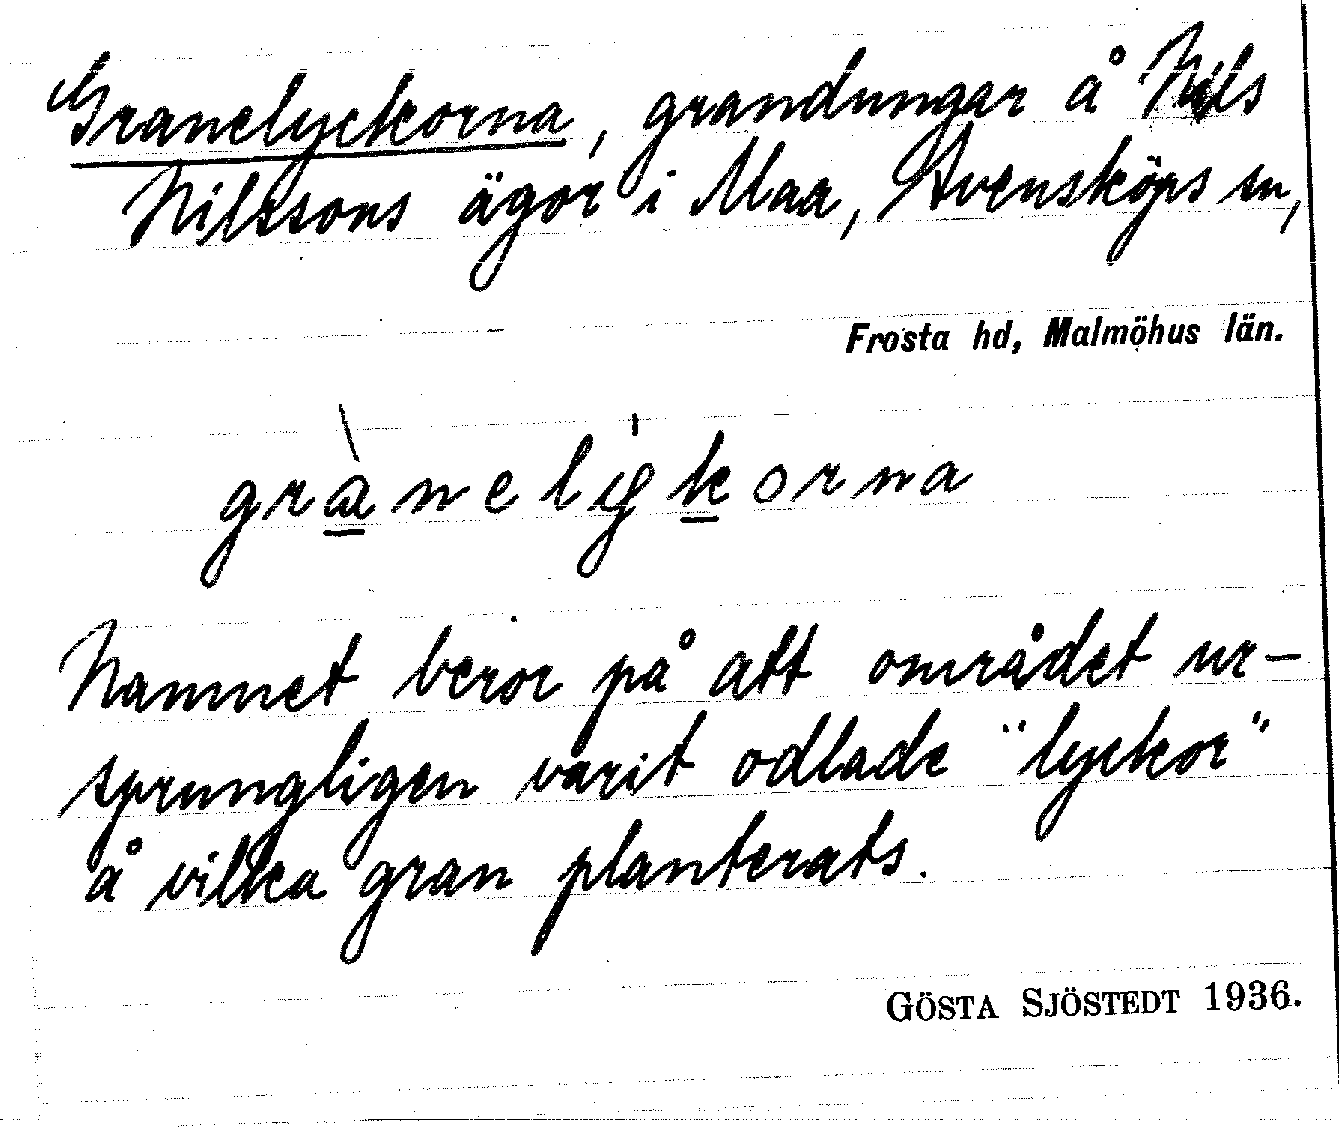 Granelyckorna, grandungar å Nils
Nilssons ägor i Maa, Svensköps sn,
Frosta hd, Malmöhus län.
grànelykorna
Namnet beror på att området ur-
sprungligen varit odlade "lyckor"
å vilka gran planterats.
GÖSTA SJÖSTEDT 1936.